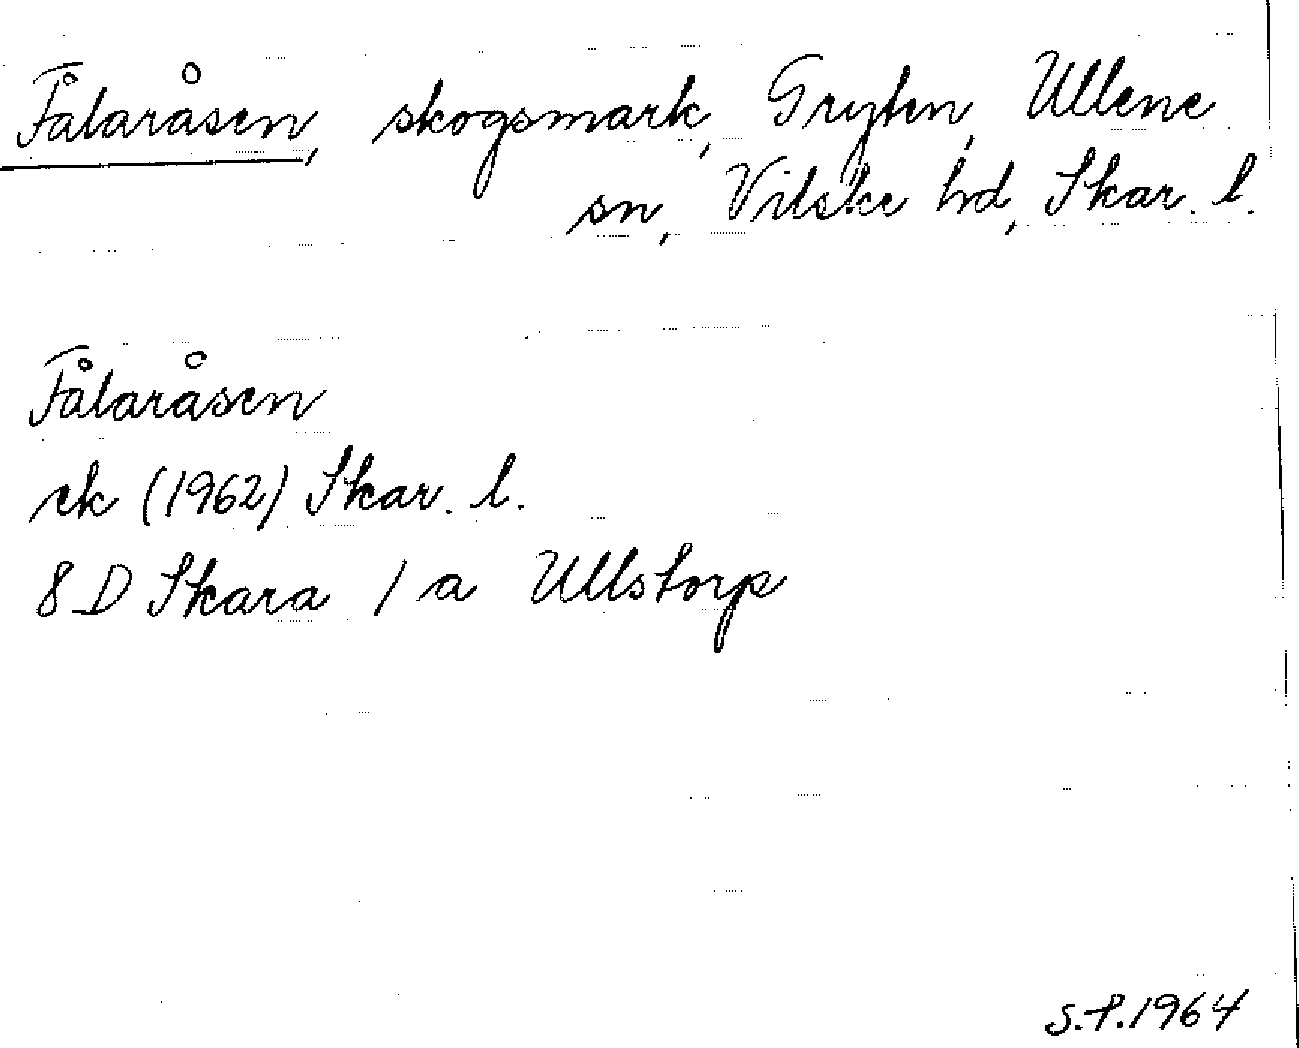 Fålaråsen, skogsmark, Gryten, Ullene
sn, Vilske hd, Skar. l.
Fålaråsen
ek (1962) Skar. l.
8 D Skara / a Ullstorp
S.P. 1964